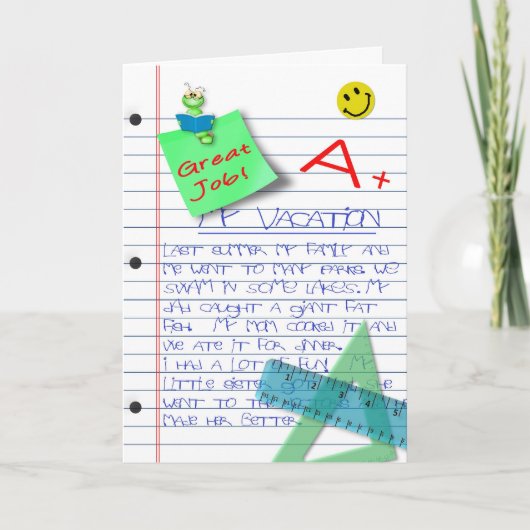 Great
Job!
A+
MY VACATION
LAST SUMMER MY FAMILY AND
ME WENT TO MANY PARKS. WE
SWAM IN SOME LAKES. MY
DAD CAUGHT A GIANT FAT
FISH. MY MOM COOKED IT AND
WE ATE IT FOR DINNER.
I HAD A LOT OF FUN! MY
LITTLE SISTER SHE
WENT TO THE
MADE HER BETTER.
1 2 3 4 5